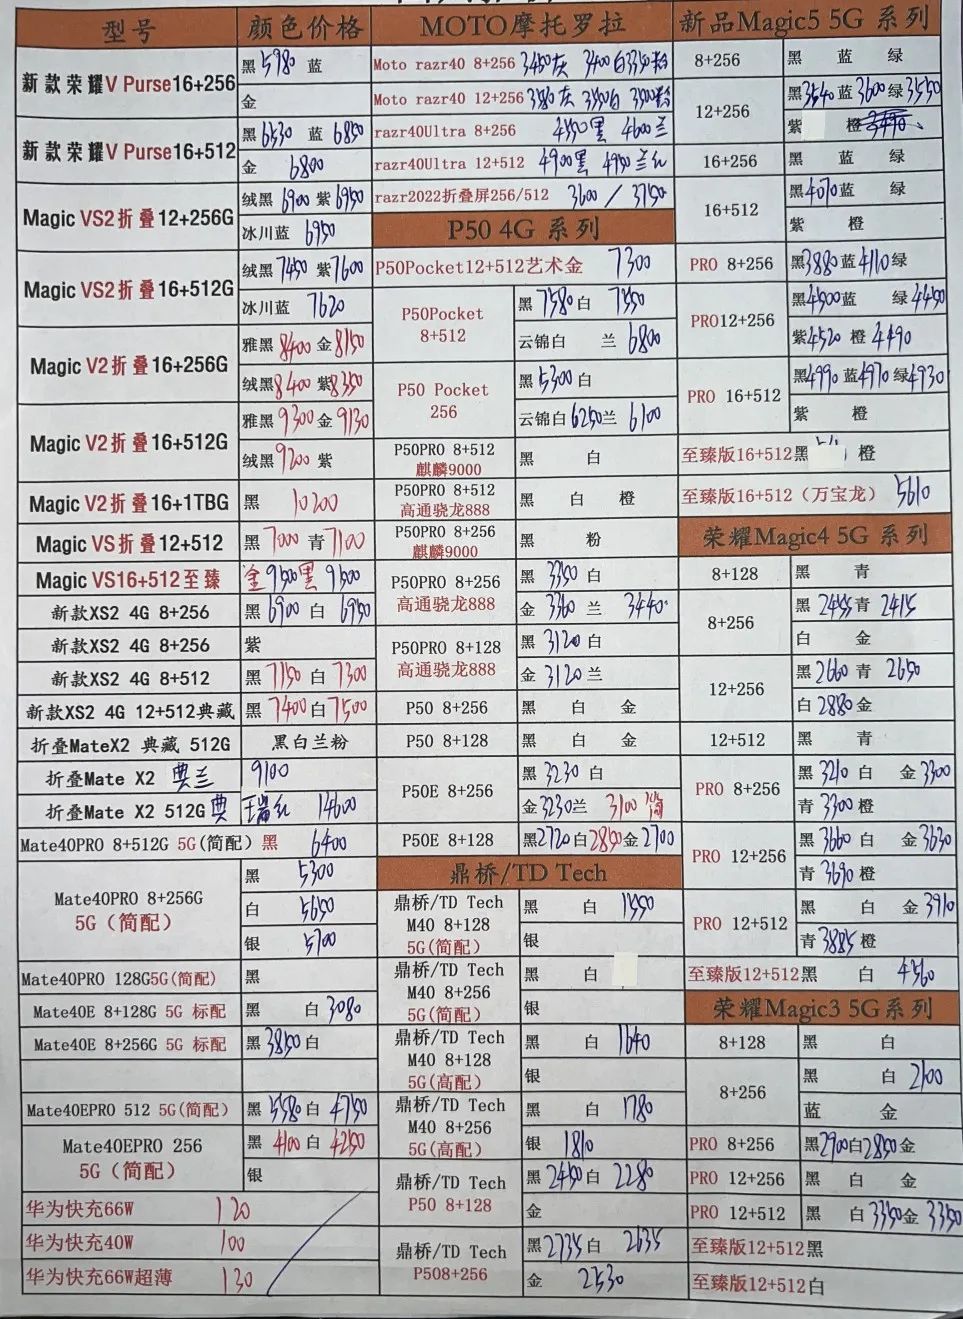 型号 颜色价格
新款荣耀V Purse16+256 黑 5980 蓝
金
新款荣耀V Purse16+512 黑 6530 蓝 6850
金 6800
Magic VS2折叠12+256G 绒黑 6900 紫 6950
冰川蓝 6950
Magic VS2折叠16+512G 绒黑 7450 紫 7600
冰川蓝 7620
Magic V2折叠16+256G 雅黑 8400 金 8150
绒黑 8400 紫 8350
Magic V2折叠16+512G 雅黑 9300 金 9130
绒黑 9200 紫
Magic V2折叠16+1TBG 黑 10200
Magic VS折叠12+512 黑 7000 青 7100
Magic VS16+512至臻 金 9500 黑 9500
新款XS2 4G 8+256 黑 6900 白 6950
新款XS2 4G 8+256 紫
新款XS2 4G 8+512 黑 7150 白 7300
新款XS2 4G 12+512典藏 黑 7400 白 7500
折叠MateX2 典藏 512G 黑白兰粉
折叠Mate X2 典兰 9100
折叠Mate X2 512G 典 瑞红 14600
Mate40PRO 8+512G 5G(简配) 黑 6400
Mate40PRO 8+256G
5G（简配）
黑 5300
白 5650
银 5700
Mate40PRO 128G5G(简配) 黑
Mate40E 8+128G 5G 标配 黑 白 3080
Mate40E 8+256G 5G 标配 黑 3850 白
Mate40EPRO 512 5G(简配) 黑 5580 白 4750
Mate40EPRO 256
5G（简配）
黑 4100 白 4250
银
华为快充66W 120
华为快充40W 100
华为快充66W超薄 130
MOTO摩托罗拉
Moto razr40 8+256 3450灰 3400白 3350粉
Moto razr40 12+256 3580灰 3550白 3500粉
razr40Ultra 8+256 4550黑 4600兰
razr40Ultra 12+512 4900黑 4950兰红
razr2022折叠屏256/512 3600 / 3750
P50 4G 系列
P50Pocket12+512艺术金 7300
P50Pocket
8+512
黑 7580 白 7550
云锦白 兰 6800
P50 Pocket
256
黑 5300 白
云锦白 6250 兰 6100
P50PRO 8+512
麒麟9000
黑 白
P50PRO 8+512
高通骁龙888
黑 白 橙
P50PRO 8+256
麒麟9000
黑 粉
P50PRO 8+256
高通骁龙888
黑 3350 白
金 3360 兰 3440
P50PRO 8+128
高通骁龙888
黑 3120 白
金 3120 兰
P50 8+256 黑 白 金
P50 8+128 黑 白 金
P50E 8+256 黑 3230 白
金 3230 兰 3100 简
P50E 8+128 黑 2720 白 2850 金 2700
鼎桥/TD Tech
鼎桥/TD Tech
M40 8+128
5G(简配)
黑 白 1550
银
鼎桥/TD Tech
M40 8+256
5G(简配)
黑 白
银
鼎桥/TD Tech
M40 8+128
5G(高配)
黑 白 1640
银
鼎桥/TD Tech
M40 8+256
5G(高配)
黑 白 1780
银 1810
鼎桥/TD Tech
P50 8+128
黑 2450 白 2280
金
鼎桥/TD Tech
P508+256
黑 2735 白 2635
金 2530
新品Magic5 5G 系列
8+256 黑 蓝 绿
12+256 黑 3540 蓝 3600 绿 3550
紫 橙 3490
16+256 黑 蓝 绿
16+512 黑 4070 蓝 绿
紫 橙
PRO 8+256 黑 3880 蓝 4110 绿
PRO12+256 黑 4500 蓝 绿 4450
紫 4520 橙 4490
PRO 16+512 黑 4990 蓝 4970 绿 4930
紫 橙
至臻版16+512 黑 橙
至臻版16+512（万宝龙） 5610
荣耀Magic4 5G 系列
8+128 黑 青
8+256 黑 2455 青 2415
白 金
12+256 黑 2660 青 2650
白 2880 金
12+512 黑 青
PRO 8+256 黑 3210 白 金 3300
青 3300 橙
PRO 12+256 黑 3660 白 金 3630
青 3690 橙
PRO 12+512 黑 白 金 3910
青 3885 橙
至臻版12+512 黑 白 4360
荣耀Magic3 5G系列
8+128 黑 白
8+256 黑 白 2100
蓝 金
PRO 8+256 黑 2900 白 2850 金
PRO 12+256 黑 白 金
PRO 12+512 黑 白 3350 金 3350
至臻版12+512 黑
至臻版12+512 白